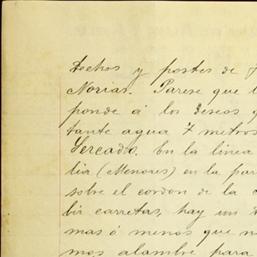 Techos y postes de
Norias. Parese que l
ponde á los deseos q
tante agua 7 metros
Sercadio. En la linea
lia (Menores) en la par
sobre el cordon de la c
bir carretas, hay un
mas ó menos que n
mos alambre para